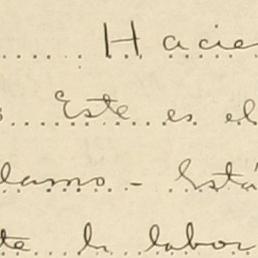 Hacien
s Este es el
lamo - Está
te la labor